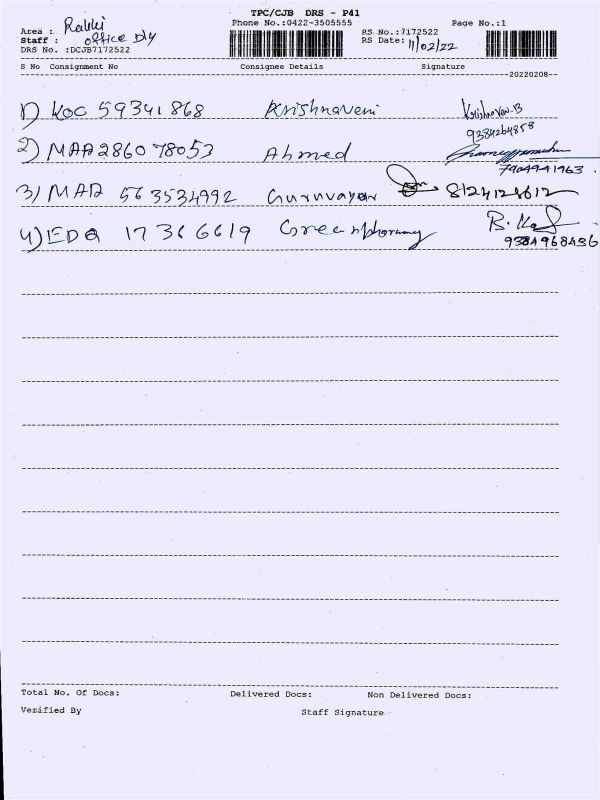 TPC/CJB DRS - P41
Area : Rakki Phone No.:0422-3505555 RS No.:7172522 Page No.:1
Staff : office Dly RS Date: 11/02/22
DRS No. :DCJB7172522
S No Consignment No Consignee Details Signature
20220208
1) KOC 59341868 Krishnaveni Krishnaven.B
9384264858
2) MAA286078053 Ahmed
7904941963
3) MAA 563534992 Guruvayar 8124128612
4) EDQ 17366619 Greenpharmacy B.
9384968436
Total No. Of Docs: Delivered Docs: Non Delivered Docs:
Verified By Staff Signature